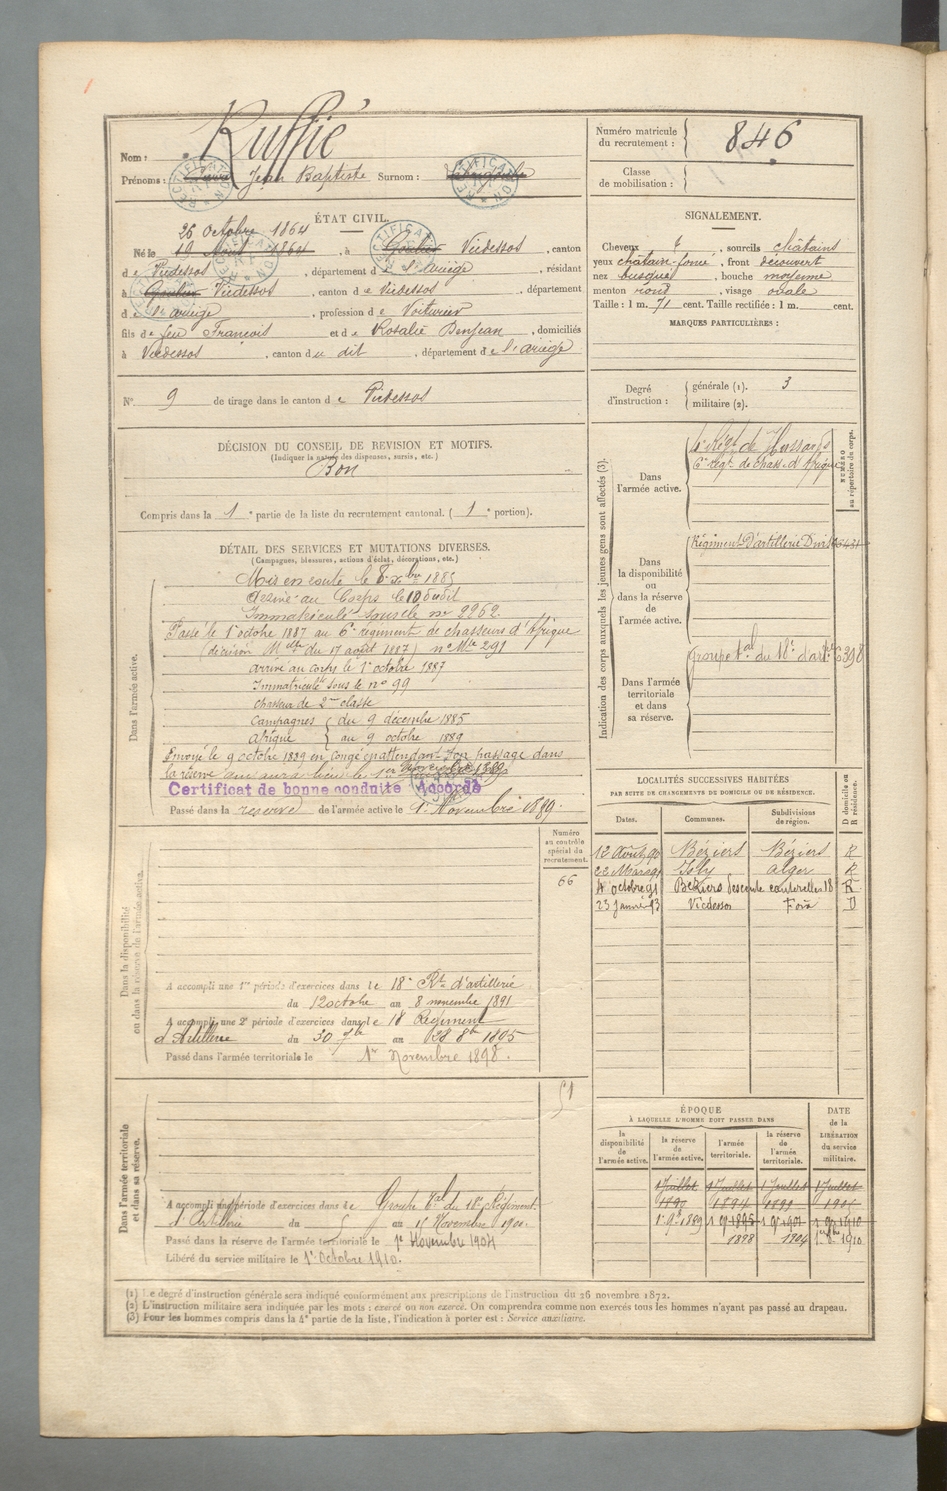 Nom : Ruffié
Prénoms : Jean Baptiste Surnom :
RECTIFICATION
RECTIFICATION
Numéro matricule du recrutement : 846
Classe de mobilisation :
ÉTAT CIVIL.
26 Octobre 1864
Né le 19 Août 1864, à Goulier Vicdessos, canton
de Vicdessos, département de l'ariège, résidant
à Goulier Vicdessos, canton de Vicdessos, département
de l'ariège, profession de Voiturier
fils de feu François et de Rosalie Denjean, domiciliés
à Vicdessos, canton du dit, département de l'ariège
N° 9 de tirage dans le canton de Vicdessos
SIGNALEMENT.
Cheveux, sourcils châtains
yeux châtain-foncé, front découvert
nez busqué, bouche moyenne
menton rond, visage ovale
Taille : 1 m. 71 cent. Taille rectifiée : 1 m. cent.
MARQUES PARTICULIÈRES :
Degré d'instruction : générale (1). 3
militaire (2).
DÉCISION DU CONSEIL DE REVISION ET MOTIFS.
(Indiquer la nature des dispenses, sursis, etc.)
Bon
Compris dans la 1e partie de la liste du recrutement cantonal. (1e portion).
DÉTAIL DES SERVICES ET MUTATIONS DIVERSES.
(Campagnes, blessures, actions d'éclat, décorations, etc.)
Dans l'armée active.
Mis en route le 8 xbre 1885
Arrivé au Corps le 10 dudit
Immatriculé sous le no 2262.
Passé le 1er octobre 1887 au 6e régiment de chasseurs d'Afrique
(décision Mlle du 17 août 1887) no Mle 291
arrivé au corps le 1er octobre 1887
Immatriculé sous le no 99
chasseur de 2me classe
Campagnes { du 9 décembre 1885
afrique } au 9 octobre 1889
Envoyé le 9 octobre 1889 en congé en attendant son passage dans
la réserve qui aura lieu le 1er Novembre 1889
Certificat de bonne conduite Accordé
Passé dans la réserve de l'armée active le 1er Novembre 1889.
Indication des corps auxquels les jeunes gens sont affectés (3).
NUMÉRO au répertoire du corps.
Dans l'armée active.
Régt de Hussards
6e régt de chass. d'Afrique
Dans la disponibilité ou dans la réserve de l'armée active.
Régiment d'artillerie Divis
Dans l'armée territoriale et dans sa réserve.
groupe tal du 18e d'art
LOCALITÉS SUCCESSIVES HABITÉES
PAR SUITE DE CHANGEMENTS DE DOMICILE OU DE RÉSIDENCE.
Dates. Communes. Subdivisions de région. D domicile ou R résidence.
12 Août 90 Béziers Béziers R
22 Mars 91 Isly alger R
4 octobre 91 Béziers 18 R
23 janvier 93 Vicdessos Foix D
Dans la disponibilité ou dans la réserve de l'armée active.
Numéro au contrôle spécial du recrutement.
66
A accompli une 1re période d'exercices dans le 18e Rt d'artillerie
du 12 octobre au 8 novembre 1891
A accompli une 2e période d'exercices dans le 18 Régiment
d'Artillerie du 30 7bre au 28 8bre 1895
Passé dans l'armée territoriale le 1er Novembre 1898.
Dans l'armée territoriale et dans sa réserve.
51
A accompli une période d'exercices dans le Groupe tal du 18e Régiment
d'Artillerie du au 15 Novembre 1900.
Passé dans la réserve de l'armée territoriale le 1er Novembre 1904
Libéré du service militaire le 1er Octobre 1910.
ÉPOQUE À LAQUELLE L'HOMME DOIT PASSER DANS
DATE de la LIBÉRATION DU SERVICE militaire.
la disponibilité de l'armée active. la réserve de l'armée active. l'armée territoriale. la réserve de l'armée territoriale.
1 Juillet 1 Juillet 1 Juillet 1 Juillet
1890 1894 1899 1905
1898 1904 1910
(1) Le degré d'instruction générale sera indiqué conformément aux prescriptions de l'instruction du 26 novembre 1872.
(2) L'instruction militaire sera indiquée par les mots : exercé ou non exercé. On comprendra comme non exercés tous les hommes n'ayant pas passé au drapeau.
(3) Pour les hommes compris dans la 4e partie de la liste, l'indication à porter est : Service auxiliaire.